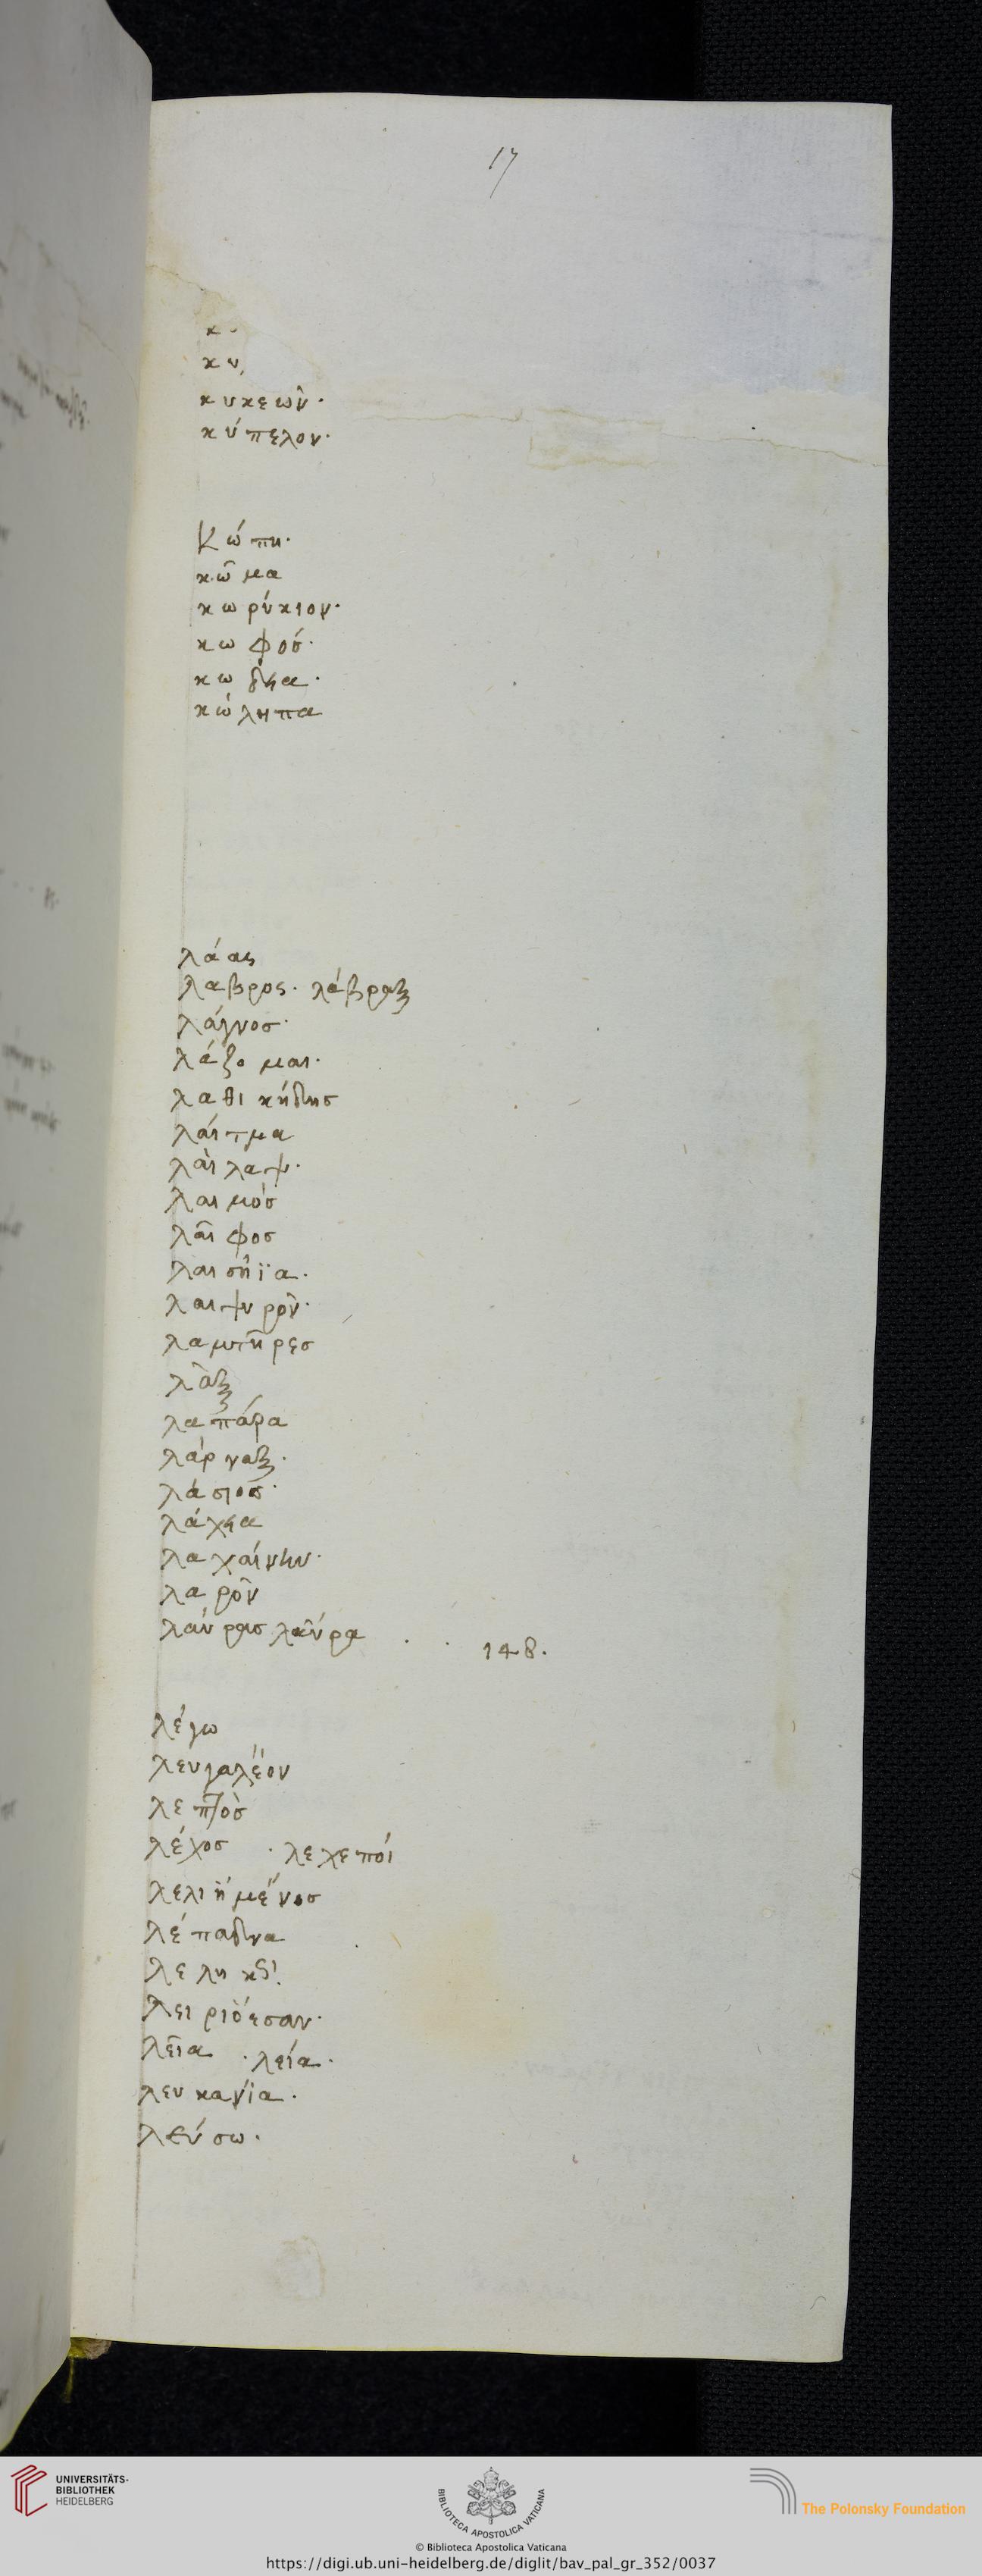 17
κ
κυ
κυκεών·
κύπελον·
Κώπη·
κῶμα
κωρύκιον·
κωφόσ·
κωδεια·
κώληπα
λάας
λαβρος· λάβραξ
λάγνοσ·
λάζομαι·
λαθικήδησ
λαίτμα
λαίλαψ·
λαιμόσ
λαῖφοσ
λαισήϊα·
λαιψυρόν·
λαμπτῆρεσ
λὰξ
λαπάρα
λάρναξ·
λάσιοσ·
λάχεια
λαχαίνειν·
λαρόν
λαύρασ λαύρα · · 148.
λέγω
λευγαλέον
λεπτὸσ
λέχοσ · λεχεποί
λελιημένοσ
λέπαδνα
λειριόεσαν·
λεῖα · λεία·
λευκανία·
λεύσω·
UNIVERSITÄTS-
BIBLIOTHEK
HEIDELBERG
BIBLIOTECA APOSTOLICA VATICANA
The Polonsky Foundation
© Biblioteca Apostolica Vaticana
https://digi.ub.uni-heidelberg.de/diglit/bav_pal_gr_352/0037